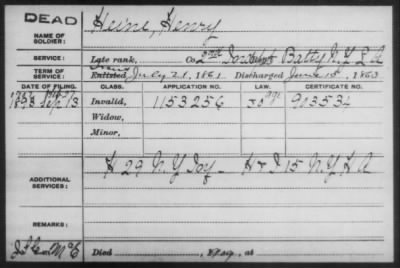 DEAD
NAME OF SOLDIER: Heine, Henry
SERVICE: Late rank, Co 2nd Batty N.Y. L A
TERM OF SERVICE: Enlisted July 21, 1861. Discharged June 1863
DATE OF FILING. CLASS. APPLICATION NO. LAW. CERTIFICATE NO.
1893 Sep 13 Invalid, 1153256 903534
Widow,
Minor,
ADDITIONAL SERVICES: H 29 N.Y. H & I 15 N.Y. H A
REMARKS:
Died , at